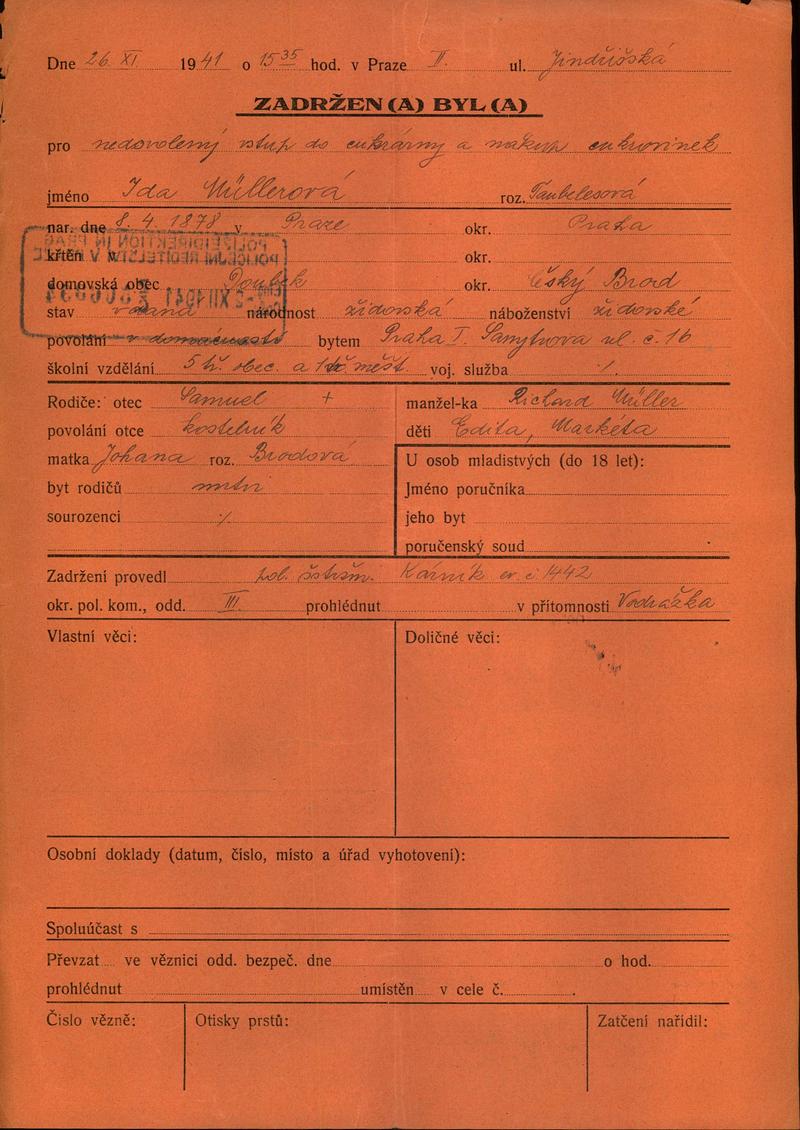 Dne 26 XI. 1941 o 15 35 hod. v Praze II. ul. Jindřišská
ZADRŽEN(A) BYL(A)
pro nedovolený vstup do cukrárny a nákup cukrovinek
jméno Ida Müllerová roz. Taubelesová
nar. dne 8. 4. 1878 v Praze okr. Praha
křtěn v okr.
domovská obec okr. Český Brod
stav vdaná národnost židovská náboženství židovské
povolání v domácnosti bytem Praha I. Sanytrova ul. č. 16
školní vzdělání 5 tř. obec. a 1 tř. měšť. voj. služba /.
Rodiče: otec Samuel + manžel-ka Richard Müller
povolání otce kostelník děti Edita, Markéta
matka Johana roz. Brodová U osob mladistvých (do 18 let):
byt rodičů mrtvi Jméno poručníka
sourozenci / jeho byt
poručenský soud
Zadržení provedl pol. strážm. Kárník ev. č. 1442
okr. pol. kom., odd. III. prohlédnut v přítomnosti Vodrážka
Vlastní věci: Doličné věci:
Osobní doklady (datum, číslo, místo a úřad vyhotovení):
Spoluúčast s
Převzat ve věznici odd. bezpeč. dne o hod.
prohlédnut umístěn v cele č.
Číslo vězně: Otisky prstů: Zatčení nařídil: